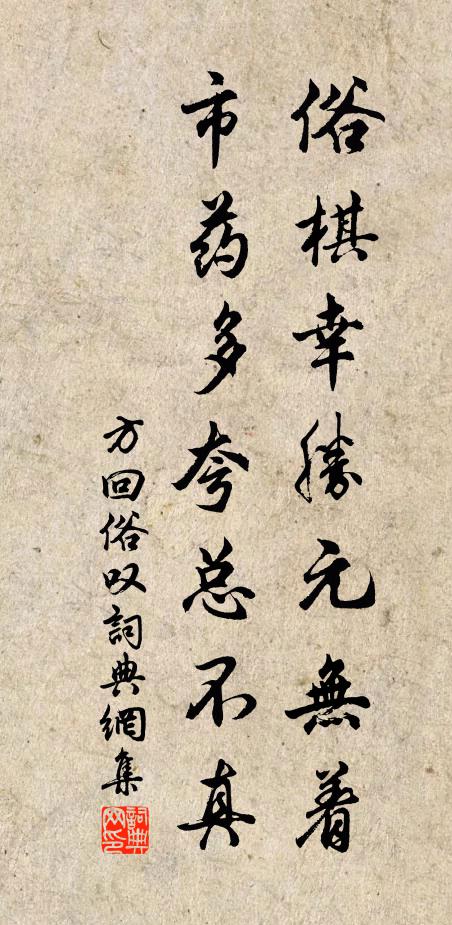 俗棋幸勝元無着
市药多夸总不真
方回俗叹詞典網集
詞典
网印